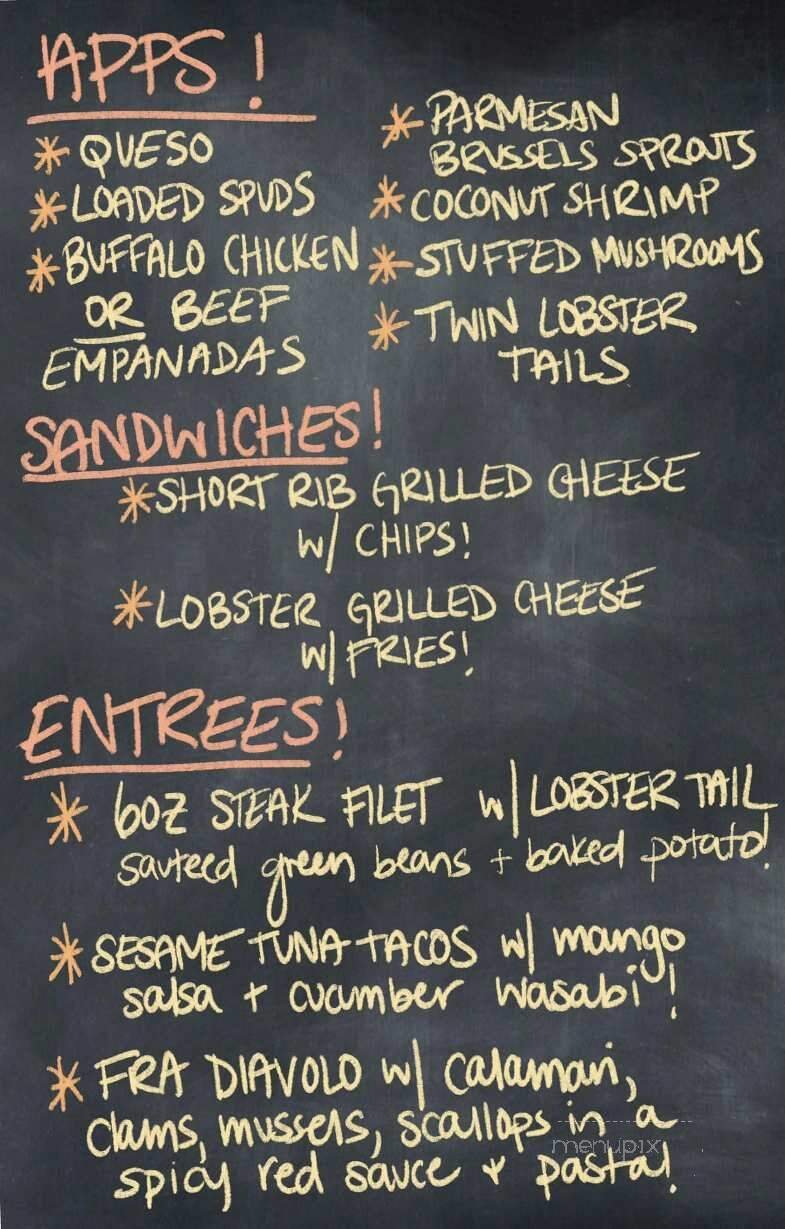 APPS!
* QUESO
* LOADED SPUDS
* BUFFALO CHICKEN
OR BEEF
EMPANADAS
* PARMESAN
BRUSSELS SPROUTS
* COCONUT SHRIMP
* STUFFED MUSHROOMS
* TWIN LOBSTER
TAILS
SANDWICHES!
* SHORT RIB GRILLED CHEESE
W/ CHIPS!
* LOBSTER GRILLED CHEESE
W/ FRIES!
ENTREES!
* 6OZ STEAK FILET W/ LOBSTER TAIL
sauteed green beans + baked potato!
* SESAME TUNA TACOS w/ mango
salsa + cucumber wasabi!
* FRA DIAVOLO w/ calamari,
clams, mussels, scallops in a
menupix
spicy red sauce + pasta!